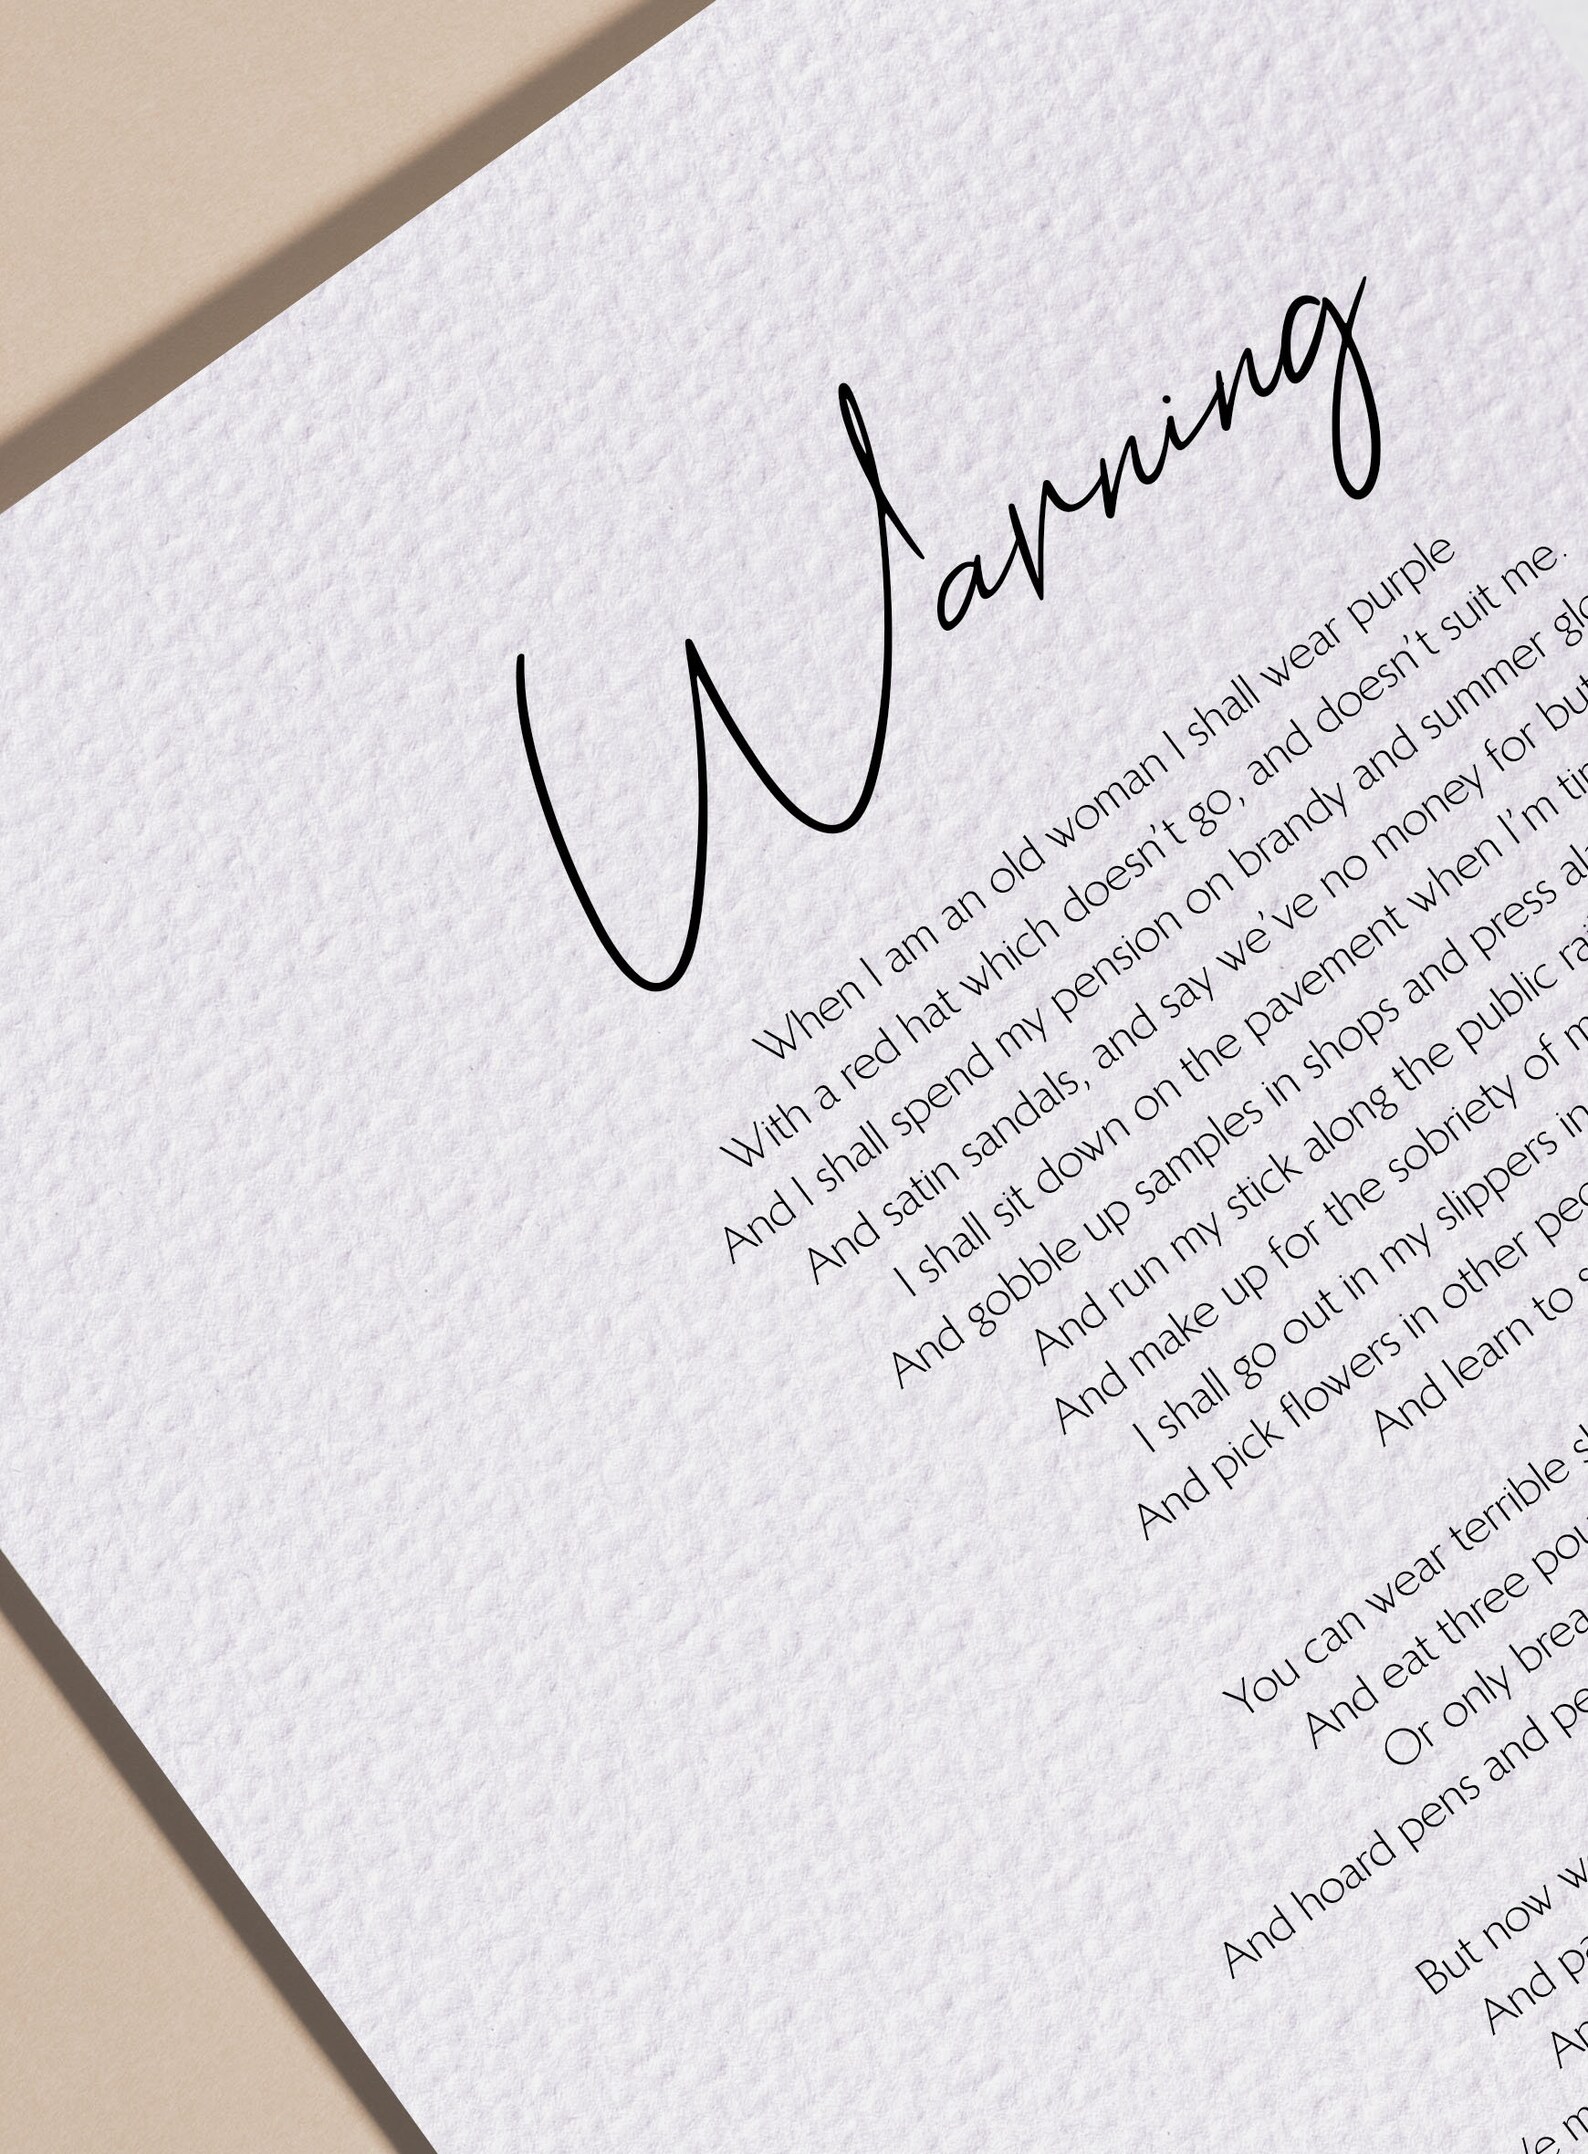 Warning
When I am an old woman I shall wear purple
With a red hat which doesn't go, and doesn't suit me.
And I shall spend my pension on brandy and summer
And satin sandals, and say we've no money for
I shall sit down on the pavement when I'm
And gobble up samples in shops and press
And run my stick along the public
And make up for the sobriety of
I shall go out in my slippers in
And pick flowers in other
And learn to
You can wear terrible
And eat three
Or only
And hoard pens and
But now
And